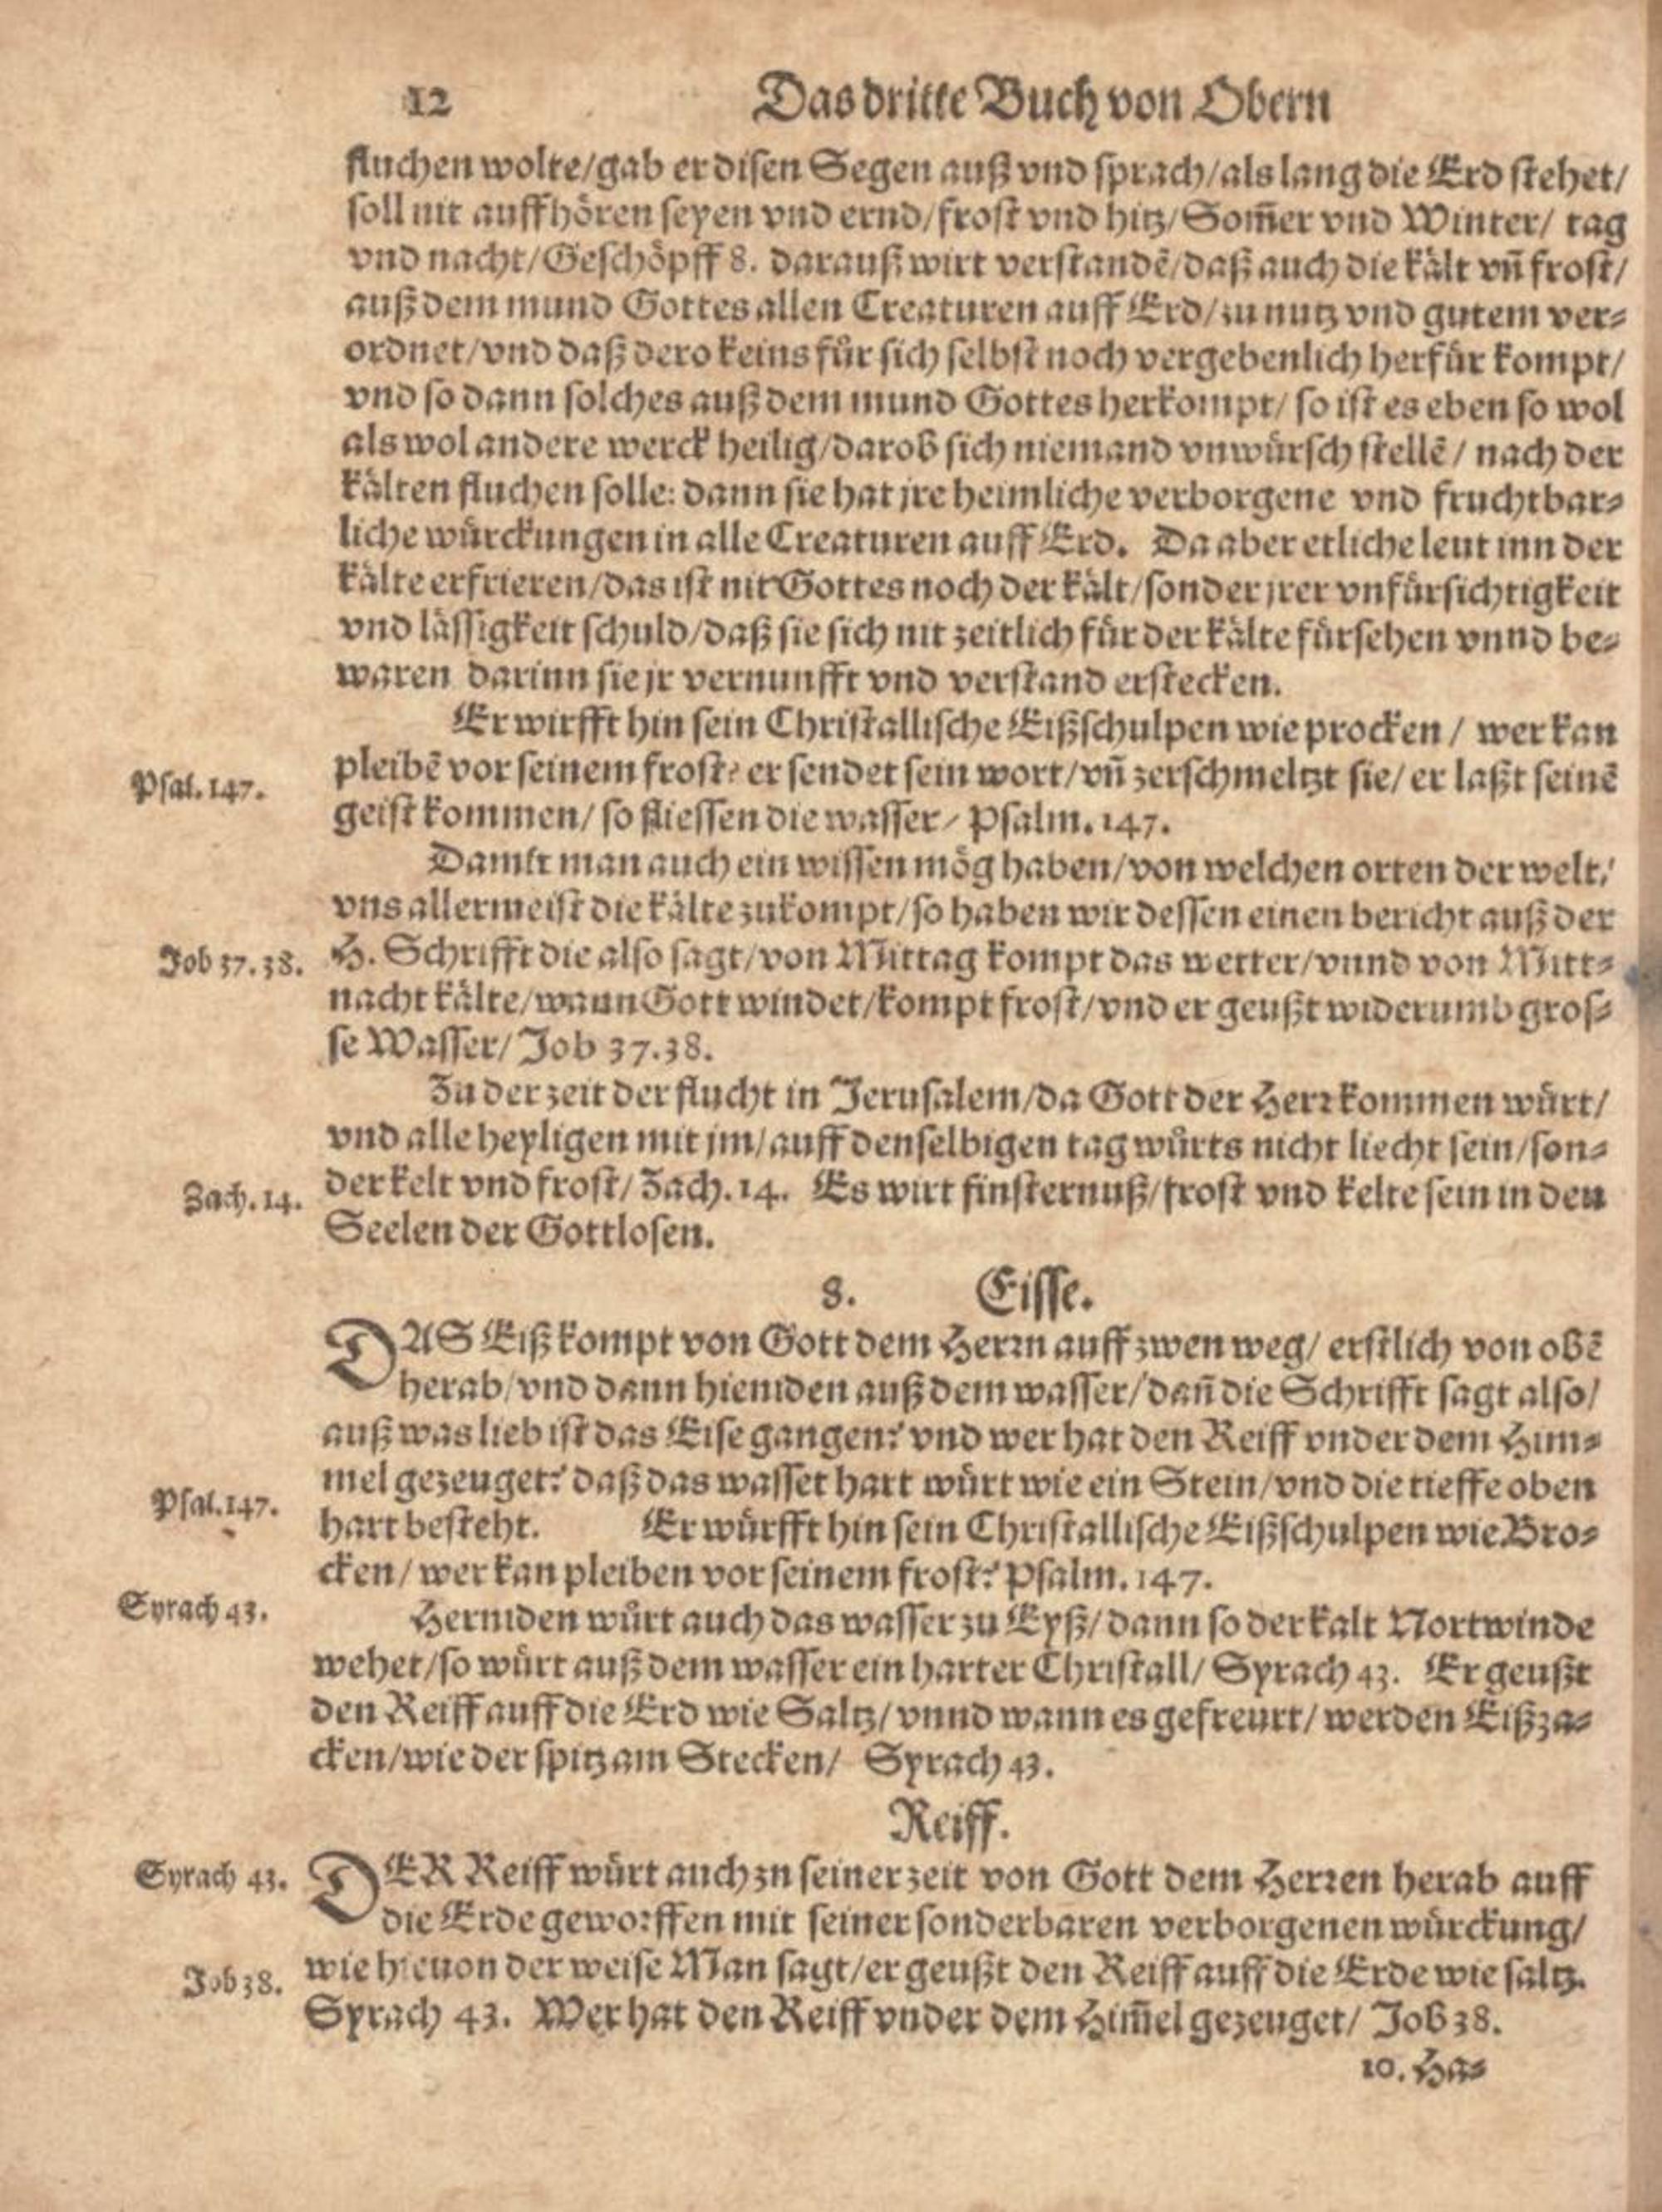 12 Das dritte Buch von Obern
fluchen wolte/gab er disen Segen auß vnd sprach/als lang die Erd stehet/
soll nit auffhören seyen vnd ernd/frost vnd hitz/Som̃er vnd Winter/ tag
vnd nacht/Geschöpff 8. darauß wirt verstandẽ/daß auch die kält vñ frost/
auß dem mund Gottes allen Creaturen auff Erd/zu nutz vnd gutem ver-
ordnet/vnd daß dero keins für sich selbst noch vergebenlich herfür kompt/
vnd so dann solches auß dem mund Gottes herkompt/ so ist es eben so wol
als wol andere werck heilig/darob sich niemand vnwürsch stellẽ/ nach der
kälten fluchen solle: dann sie hat jre heimliche verborgene vnd fruchtbar-
liche würckungen in alle Creaturen auff Erd. Da aber etliche leut inn der
kälte erfrieren/das ist nit Gottes noch der kält/sonder jrer vnfürsichtigkeit
vnd lässigkeit schuld/daß sie sich nit zeitlich für der kälte fürsehen vnnd be-
waren darinn sie jr vernunfft vnd verstand erstecken.
Er wirfft hin sein Christallische Eißschulpen wie procken / wer kan
Psal. 147.
pleibẽ vor seinem frost? er sendet sein wort/vñ zerschmeltzt sie/ er laßt seinẽ
geist kommen/ so fliessen die wasser/ Psalm. 147.
Damit man auch ein wissen mög haben/von welchen orten der welt/
vns allermeist die kälte zukompt/so haben wir dessen einen bericht auß der
Job 37. 38.
H. Schrifft die also sagt/von Mittag kompt das wetter/vnnd von Mitt-
nacht kälte/wann Gott windet/kompt frost/vnd er geußt widerumb gros-
se Wasser/ Job 37.38.
Zu der zeit der flucht in Jerusalem/da Gott der Herr kommen würt/
vnd alle heyligen mit jm/auff denselbigen tag würts nicht liecht sein/son-
Zach. 14.
der kelt vnd frost/ Zach. 14. Es wirt finsternuß/frost vnd kelte sein in den
Seelen der Gottlosen.
8. Eisse.
DAS Eiß kompt von Gott dem Herrn auff zwen weg/ erstlich von obẽ
herab/vnd dann hieniden auß dem wasser/dañ die Schrifft sagt also/
auß was lieb ist das Eise gangen? vnd wer hat den Reiff vnder dem Him-
mel gezeuget? daß das wasser hart würt wie ein Stein/vnd die tieffe oben
Psal. 147.
hart besteht. Er würfft hin sein Christallische Eißschulpen wie Bro-
cken/ wer kan pleiben vor seinem frost? Psalm. 147.
Syrach 43.
Herniden würt auch das wasser zu Eyß/ dann so der kalt Nortwinde
wehet/so würt auß dem wasser ein harter Christall/ Syrach 43. Er geußt
den Reiff auff die Erd wie Saltz/ vnnd wann es gefreurt/ werden Eißza-
cken/wie der spitz am Stecken/ Syrach 43.
Reiff.
Syrach 43.
DER Reiff würt auch zu seiner zeit von Gott dem Herren herab auff
die Erde geworffen mit seiner sonderbaren verborgenen würckung/
Job 38.
wie hieuon der weise Man sagt/er geußt den Reiff auff die Erde wie saltz.
Syrach 43. Wer hat den Reiff vnder dem Him̃el gezeuget/ Job 38.
10. Ha-